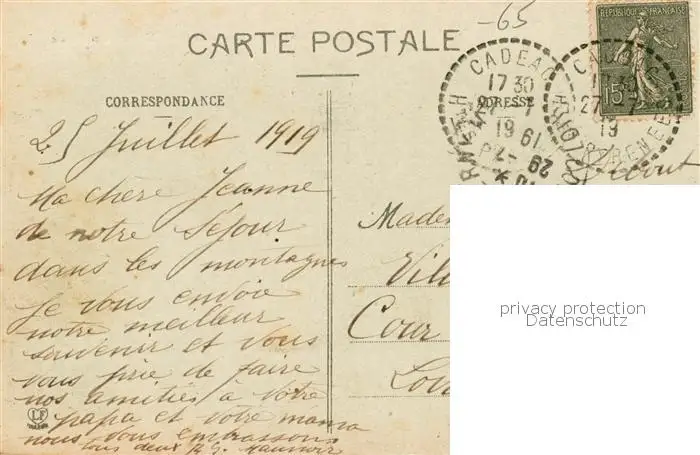 -65
CARTE POSTALE
REPUBLIQUE FRANÇAISE
15
CADEAC
17 30
27 -7
19
PYRENEES
CORRESPONDANCE
ADRESSE
25 Juillet 1919
Ma chere Jeanne
de notre Séjour
dans les montagnes
Je vous envoie
notre meilleur
souvenir et vous
vous prie de faire
nos amitiés à votre
papa et votre mama
nous vous embrassons
tous deux
LF
Madem
Vill
Cour
privacy protection
Datenschutz